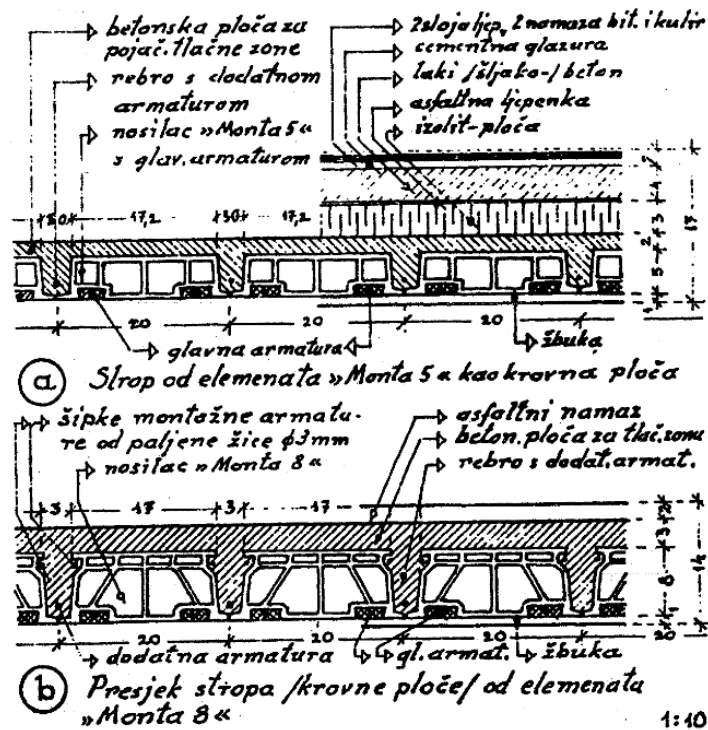 betonska ploča za
pojač. tlačne zone
rebro s dodatnom
armaturom
nosilac »Monta 5«
s glav. armaturom
2 sloja ljep, 2 namaza bit. i kulir
cementna glazura
laki /šljako-/ beton
asfaltna ljepenka
izolit-ploča
30 17,2 30 17,2
2 4 3 2 5 1 17
20 20 20
glavna armatura
žbuka
a Strop od elemenata »Monta 5« kao krovna ploča
šipke montažne armatu-
re od paljene žice ϕ3mm
nosilac »Monta 8«
asfaltni namaz
beton. ploča za tlač. zonu
rebro s dodat. armat.
3 17 3 17
2 3 8 1 14
20 20 20 20
dodatna armatura
gl. armat.
žbuka
b Presjek stropa /krovne ploče/ od elemenata
»Monta 8«
1:10